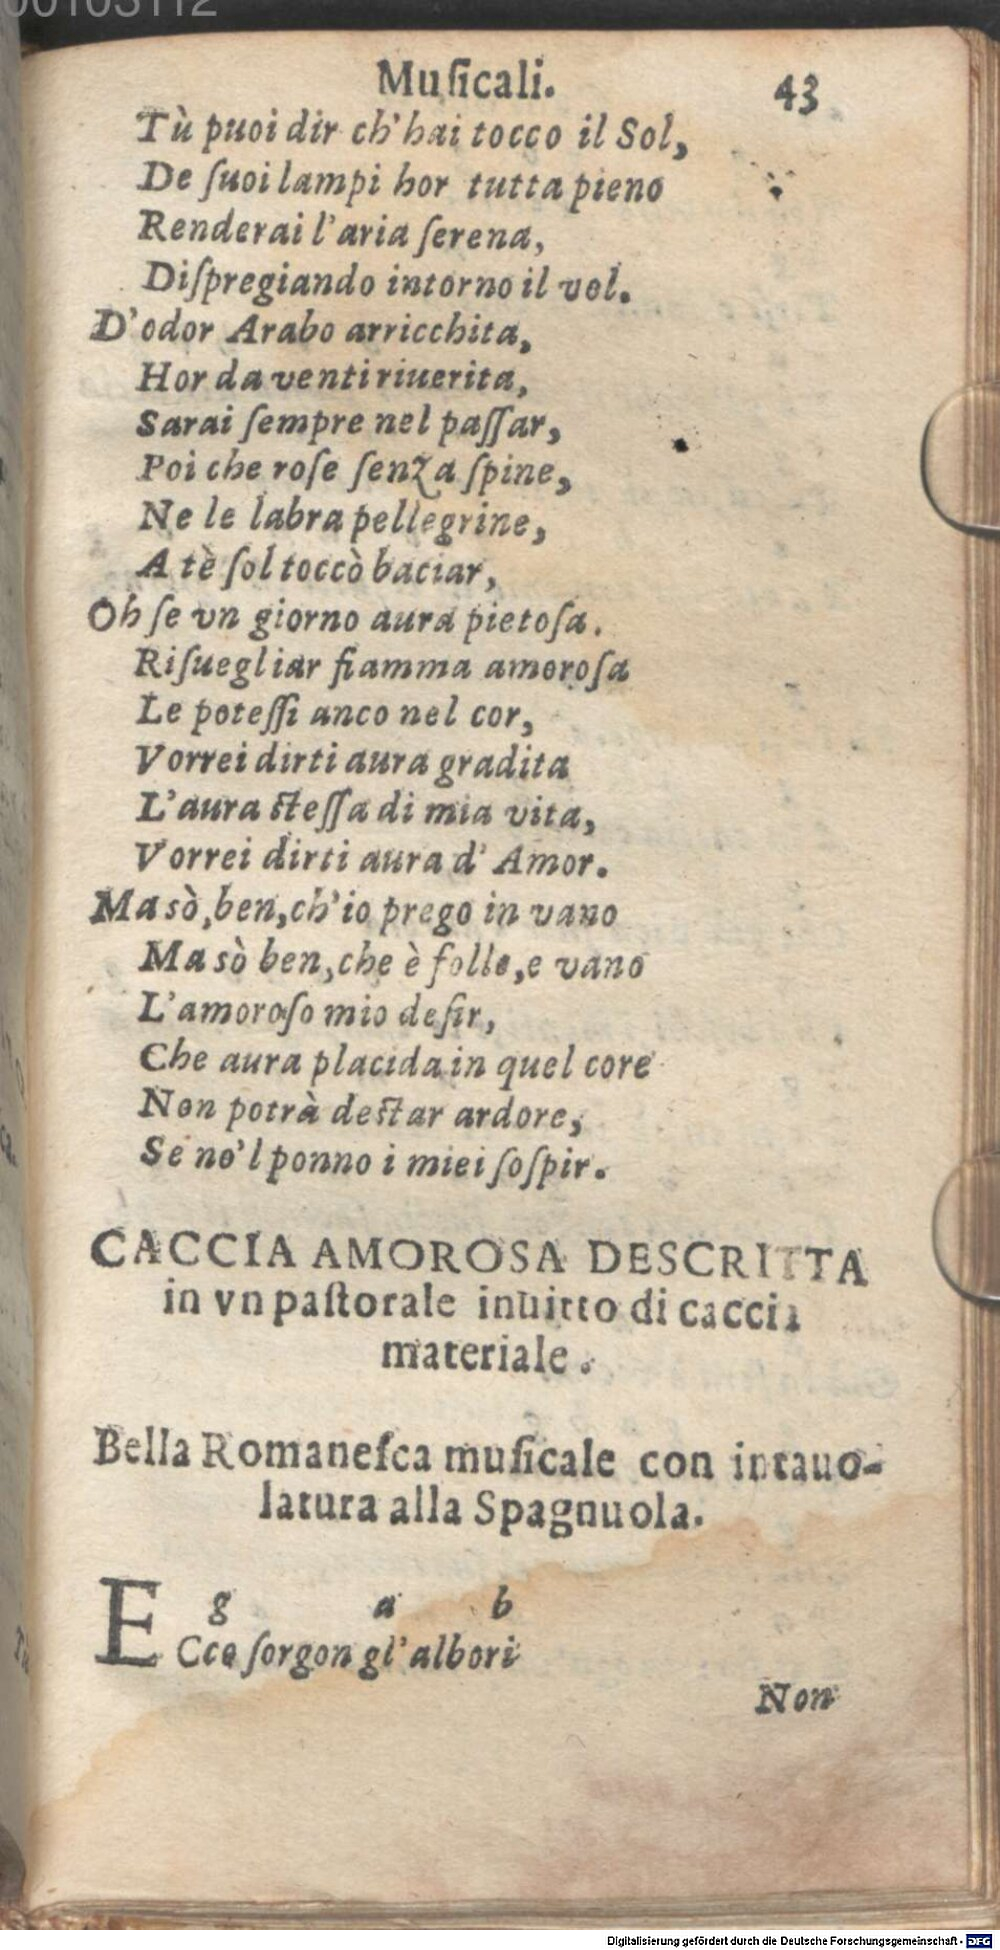 00103112
Muſicali.
43
Tù puoi dir ch'hai tocco il Sol,
De ſuoi lampi hor tutta pieno
Renderai l'aria ſerena,
Diſpregiando intorno il vol.
D'odor Arabo arricchita,
Hor da venti riuerita,
Sarai ſempre nel paſſar,
Poi che roſe ſenza ſpine,
Ne le labra pellegrine,
A tè ſol toccò baciar,
Oh ſe vn giorno aura pietoſa.
Riſuegliar fiamma amoroſa
Le poteſſi anco nel cor,
Vorrei dirti aura gradita
L'aura ſteſſa di mia vita,
Vorrei dirti aura d'Amor.
Ma sò, ben, ch'io prego in vano
Ma sò ben, che è folle, e vano
L'amoroſo mio deſir,
Che aura placida in quel core
Non potrà deſtar ardore,
Se no'l ponno i miei ſoſpir.
CACCIA AMOROSA DESCRITTA
in vn paſtorale inuitto di caccia
materiale.
Bella Romaneſca muſicale con intauo-
latura alla Spagnuola.
g a b
ECco ſorgon gl'albori
Non
Digitalisierung gefördert durch die Deutsche Forschungsgemeinschaft - DFG